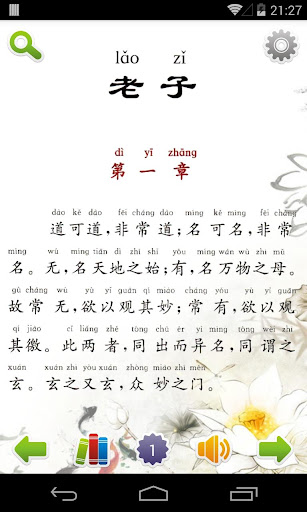 21:27
lǎo zǐ
老子
dì yī zhāng
第一章
dào kě dào fēi cháng dào míng kě míng fēi cháng
道可道，非常道；名可名，非常
míng wú míng tiān dì zhī shǐ yǒu míng wàn wù zhī mǔ
名。无，名天地之始；有，名万物之母。
gù cháng wú yù yǐ guān qí miào cháng yǒu yù yǐ guān
故常 无，欲以观其妙；常 有，欲以观
qí jiào cǐ liǎng zhě tóng chū ér yì míng tóng wèi zhī
其徼。此两者，同出而异名，同谓之
xuán xuán zhī yòu xuán zhòng miào zhī mén
玄。玄之又玄，众 妙之门。
1